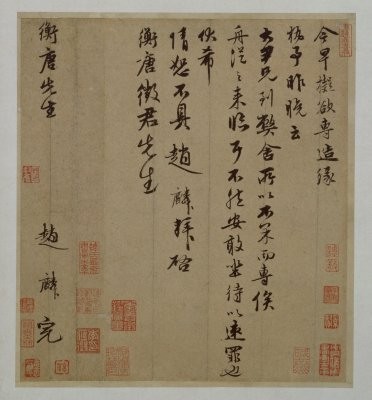 今早擬欲專造緣
予昨晚云
大尹兄到弊舍所以不果而專俟
舟從之來臨耳不然安敢坐待以速罪也
伏希
情恕不具趙麟拜啓
衡唐徵君先生
衡唐先生 趙麟完